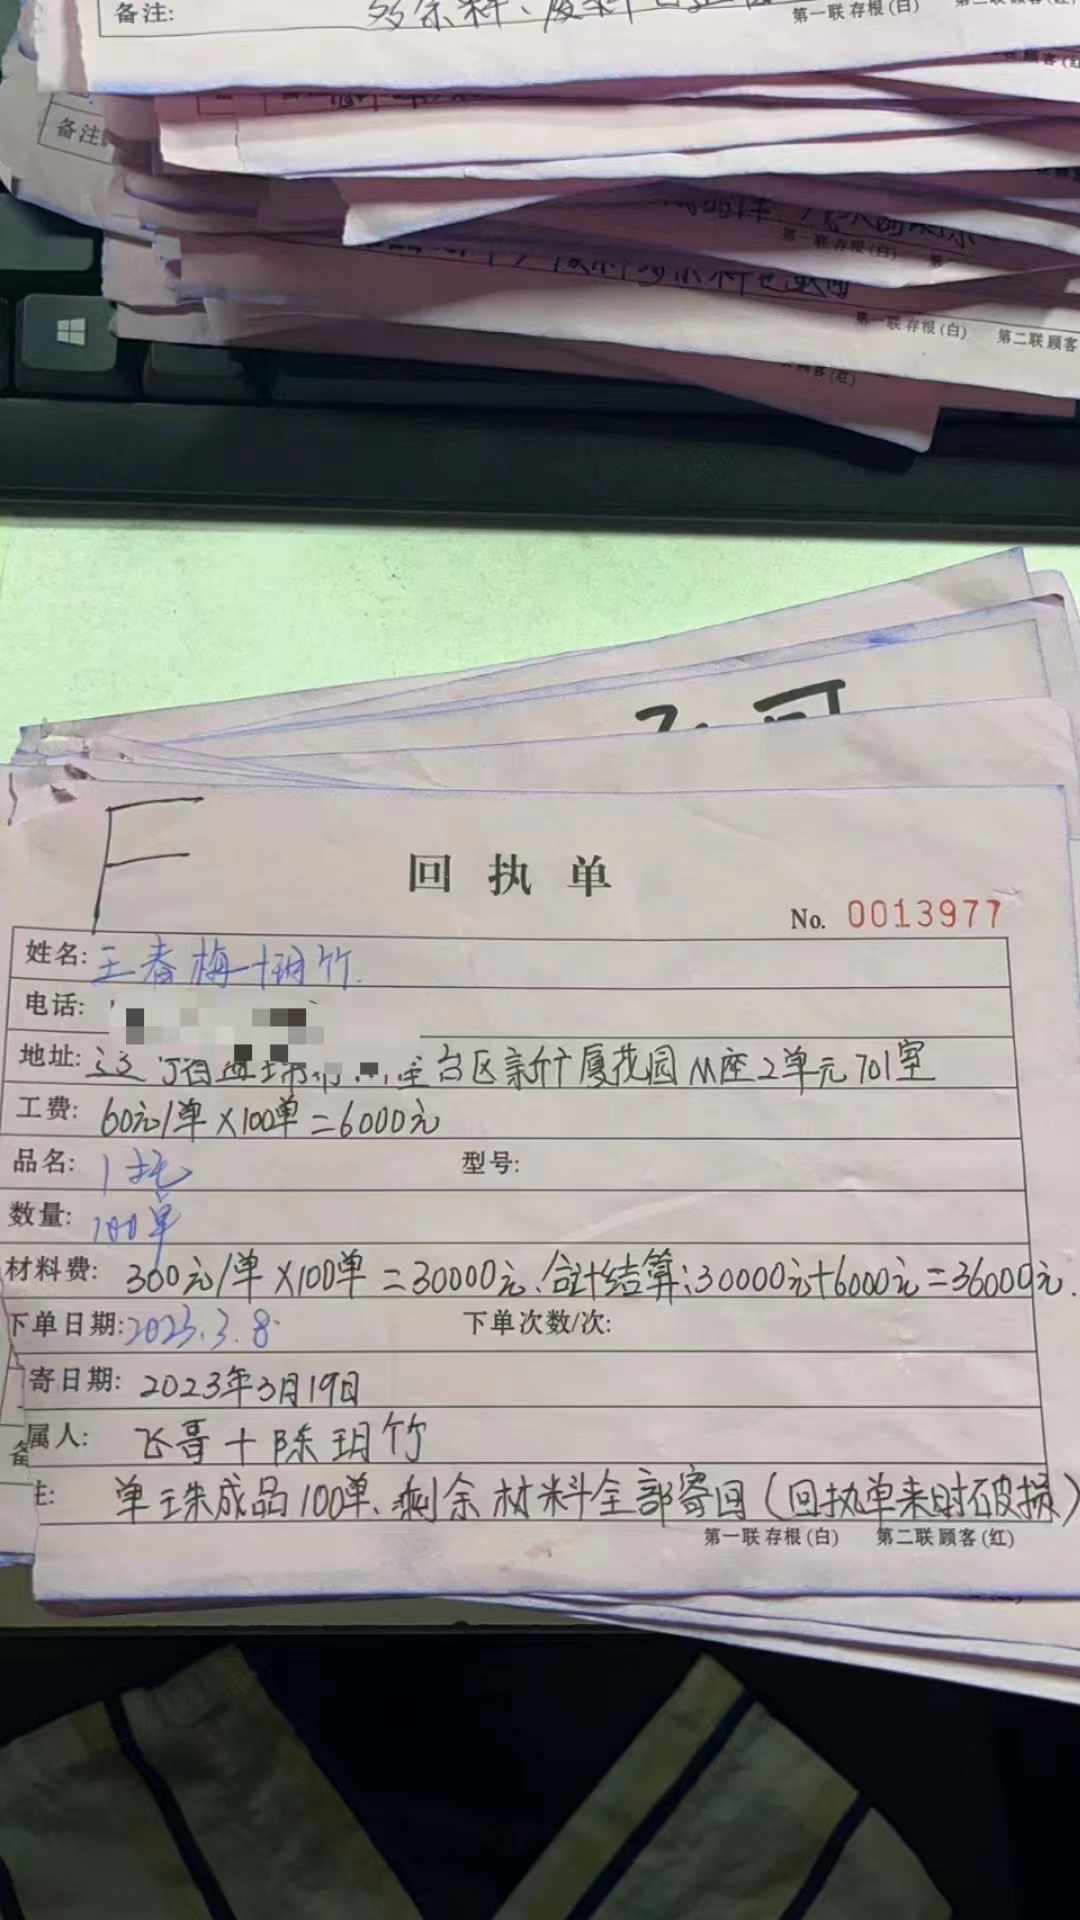 备注:
第一联 存根(白)
备注
第一联 存根(白)
第一联 存根(白) 第二联 顾客
联 顾客(红)
F
回执单
No. 0013977
姓名: 王春梅+玥竹
电话:
地址: 台区新广厦花园M座2单元701室
工费: 60元/单×100单=6000元
品名: 1托 型号:
数量: 100单
材料费: 300元/单×100单=30000元.合计结算:30000元+6000元=36000元.
下单日期:2023.3.8. 下单次数/次:
寄日期: 2023年3月19日
属人: 飞哥+陈玥竹
备
注: 单珠成品100单、剩余材料全部寄回(回执单来时破损)
第一联 存根(白) 第二联 顾客(红)